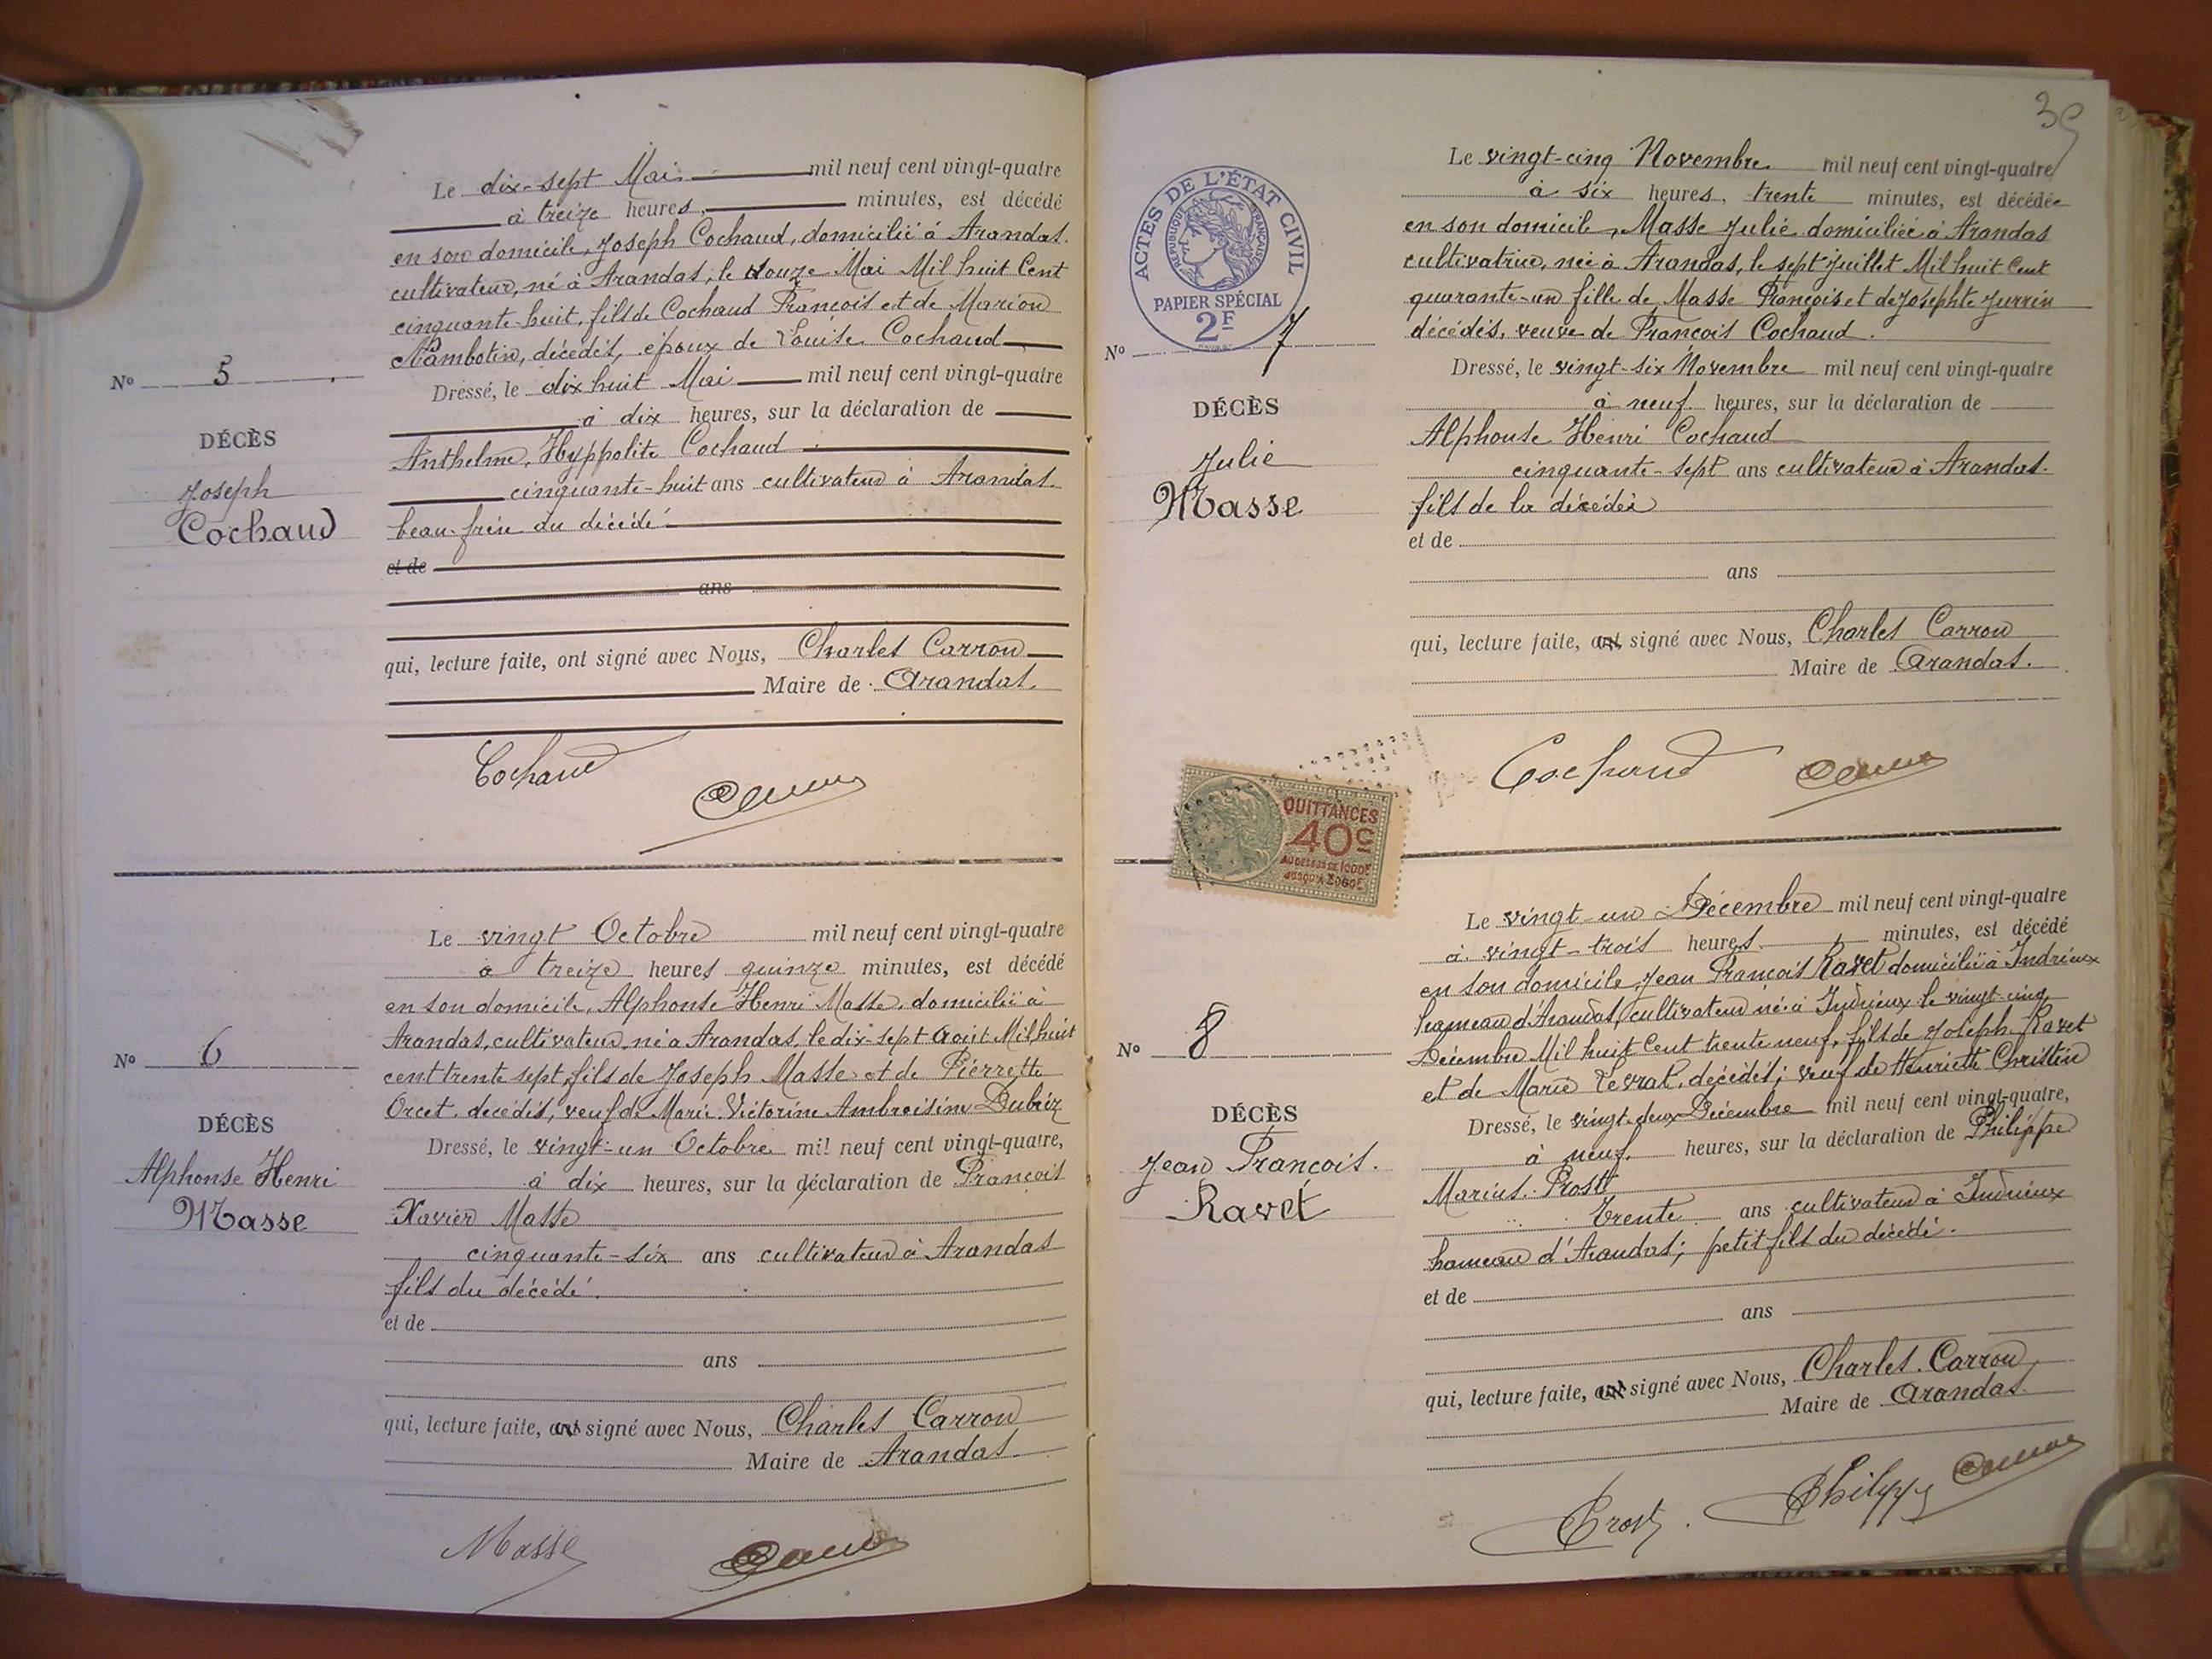 Le dix-sept Mai mil neuf cent vingt-quatre
à treize heures, minutes, est décédé
en son domicile, Joseph Cochaud, domicilié à Arandas.
cultivateur, né à Arandas, le douze Mai Mil huit Cent
cinquante-huit, fils de Cochaud François et de Marion
Nambotin, décédés, époux de Louise Cochaud
Nº 5
Dressé, le dix huit Mai mil neuf cent vingt-quatre
à dix heures, sur la déclaration de
DÉCÈS
Anthelme, Hyppolite Cochaud
Joseph
cinquante-huit ans cultivateur à Arandas
Cochaud
beau-frère du décédé
et de
ans
qui, lecture faite, ont signé avec Nous, Charles Carron
Maire de Arandas.
Cochaud
Le vingt Octobre mil neuf cent vingt-quatre
à treize heures quinze minutes, est décédé
en son domicile, Alphonse Henri Masse, domicilié à
Arandas, cultivateur, né à Arandas, le dix-sept Août Mil huit
Nº 6
cent trente sept, fils de Joseph Masse et de Pierrette
Orcet, décédés, veuf de Marie Victorine Ambroisine Dubriz
DÉCÈS
Dressé, le vingt-un Octobre mil neuf cent vingt-quatre,
Alphonse Henri
à dix heures, sur la déclaration de François
Masse
Xavier Masse
cinquante-six ans cultivateur à Arandas
fils du décédé.
et de
ans
qui, lecture faite, signé avec Nous, Charles Carron
Maire de Arandas
Masse
39
ACTES DE L'ÉTAT CIVIL
RÉPUBLIQUE FRANÇAISE
PAPIER SPÉCIAL
2F
Le vingt-cinq Novembre mil neuf cent vingt-quatre
à six heures, trente minutes, est décédée
en son domicile, Masse Julie domiciliée à Arandas
cultivatrice, née à Arandas, le sept Juillet Mil huit Cent
quarante-un fille de Masse François et de Josephte Jurrin
décédés, veuve de François Cochaud.
Nº 7
Dressé, le vingt-six Novembre mil neuf cent vingt-quatre
à neuf heures, sur la déclaration de
DÉCÈS
Alphonse Henri Cochaud
Julie
cinquante-sept ans cultivateur à Arandas.
Masse
fils de la décédée
et de
ans
qui, lecture faite, signé avec Nous, Charles Carron
Maire de Arandas.
Cochaud
QUITTANCES
40c
AU DESSUS DE 1000F
JUSQU'À 3000F
Le vingt-un Décembre mil neuf cent vingt-quatre
à vingt-trois heures minutes, est décédé
en son domicile Jean François Ravet domicilié à Indrieux
hameau d'Arandas, cultivateur né à Indrieux le vingt-cinq
Décembre Mil huit Cent trente neuf, fils de Joseph Ravet
Nº 8
et de Marie Tevrat, décédés; veuf de Henriette Christin
DÉCÈS
Dressé, le vingt-deux Décembre mil neuf cent vingt-quatre,
Jean François.
à neuf heures, sur la déclaration de Philippe
Ravet
Marius Prost
trente ans cultivateur à Indrieux
hameau d'Arandas; petit fils du décédé.
et de
ans
qui, lecture faite, signé avec Nous, Charles Carron
Maire de Arandas
Prost. Philippe